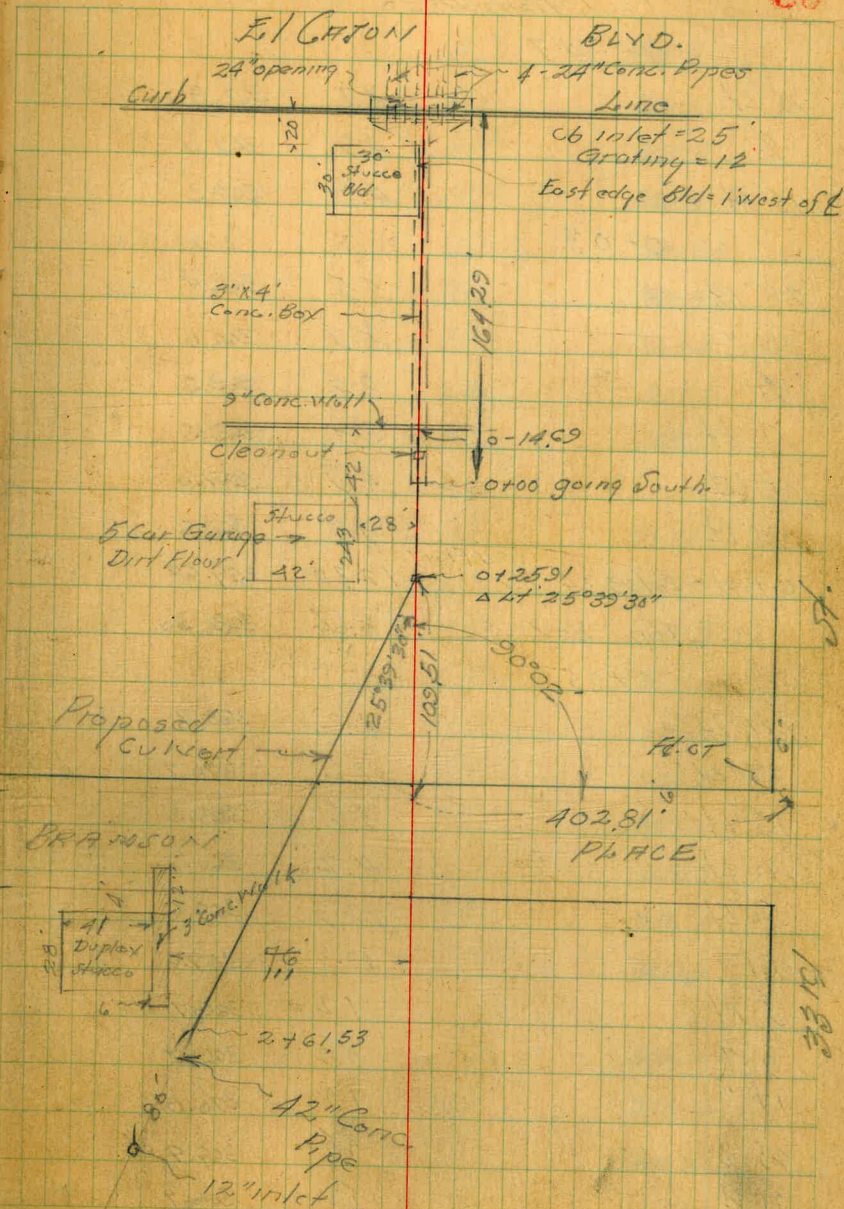 El CAJON BLVD.
24" opening
4-24" Conc. Pipes
Curb
Line
20'
Cb inlet = 25'
Grating = 12
30'
Stucco
Bld.
30'
East edge Bld = 1' West of ℄
3' X 4'
Conc. Box
164.29'
9" Conc. Wall
0-14.69
Cleanout
42'
0+00 going South.
Stucco
28'
5 Car Garage
Dirt Floor
24.3
42'
0+25.91
Δ Lt 25°39'30"
St.
25°39'30"
109.51
90°02'
Proposed
Culvert
6'
6'
402.81'
BRAMSON
PLACE
4'
12'
3' Conc. Walk
41
Duplex
Stucco
28'
76'
6
33rd
2+61.53
80'
42" Conc.
Pipe
12" inlet